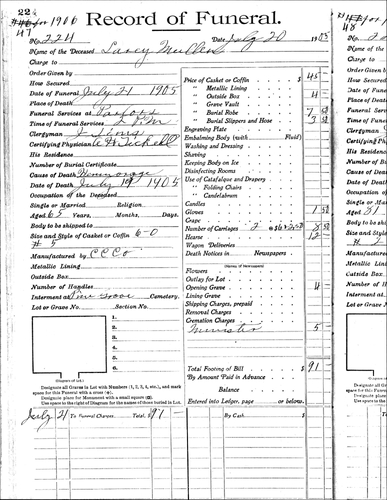 224
#46 for 1906
47
Record of Funeral.
No. 224 Date July 20 1905
Name of the Deceased Lacey Mullen
Charge to
Order Given by
How Secured
Date of Funeral July 21 1905
Place of Death
Funeral Services at Parlors
Time of Funeral Services 2 P.M.
Clergyman J Sims
Certifying Physician
His Residence
Number of Burial Certificate
Cause of Death
Date of Death July 19 1905
Occupation of the Deceased
Single or Married Religion
Aged 65 Years, Months, Days.
Body to be shipped to
Size and Style of Casket or Coffin 6-0
# 5
Manufactured by C C Co
Metallic Lining
Outside Box
Number of Handles
Interment at Pine Grove Cemetery.
Lot or Grave No. Section No.
1.
2.
3.
4.
5.
6.
(Diagram of Lot.)
Designate all Graves in Lot with Numbers (1, 2, 3, 4, etc.), and mark
space for this Funeral with a cross (+).
Designate place for Monument with a small square (□).
Use space to the right of Diagram for the names of those buried in Lot.
Price of Casket or Coffin $ 45 —
" Metallic Lining
" Outside Box 4 —
" Grave Vault
" Burial Robe 7
" Burial Slippers and Hose 3
Engraving Plate
Embalming Body (with Fluid)
Washing and Dressing
Shaving
Keeping Body on Ice
Disinfecting Rooms
Use of Catafalque and Drapery
" Folding Chairs
" Candelabrum
Candles
Gloves 1
Crape
Number of Carriages 2 @ $
Hearse 12 —
Wagon Deliveries
Death Notices in Newspapers
(Names of Newspapers)
Flowers
Outlay for Lot
Opening Grave 4
Lining Grave
Shipping Charges, prepaid
Removal Charges
Cremation Charges
Minister 5
Total Footing of Bill $ 91 —
By Amount Paid in Advance
Balance
Entered into Ledger, page or below.
July 21 To Funeral Charges Total, $ 91 — By Cash $
48
No.
Name of
Charge to
Order G
How Sec
Date of
Place of
Funeral
Time of
Clergym
Certifyin
His Resi
Number
Cause of
Date of
Occupati
Single or
Aged 81
Body to
Size and
# 2
Manufact
Metallic
Outside
Number
Intermen
Lot or G